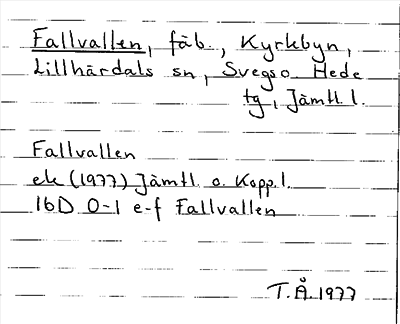 Fallvallen, fäb., Kyrkbyn,
Lillhärdals sn, Svegs o. Hede
tg, Jämtl. l.
Fallvallen
ek (1977) Jämtl. o. Kopp. l.
16D 0-1 e-f Fallvallen
T.Å. 1977